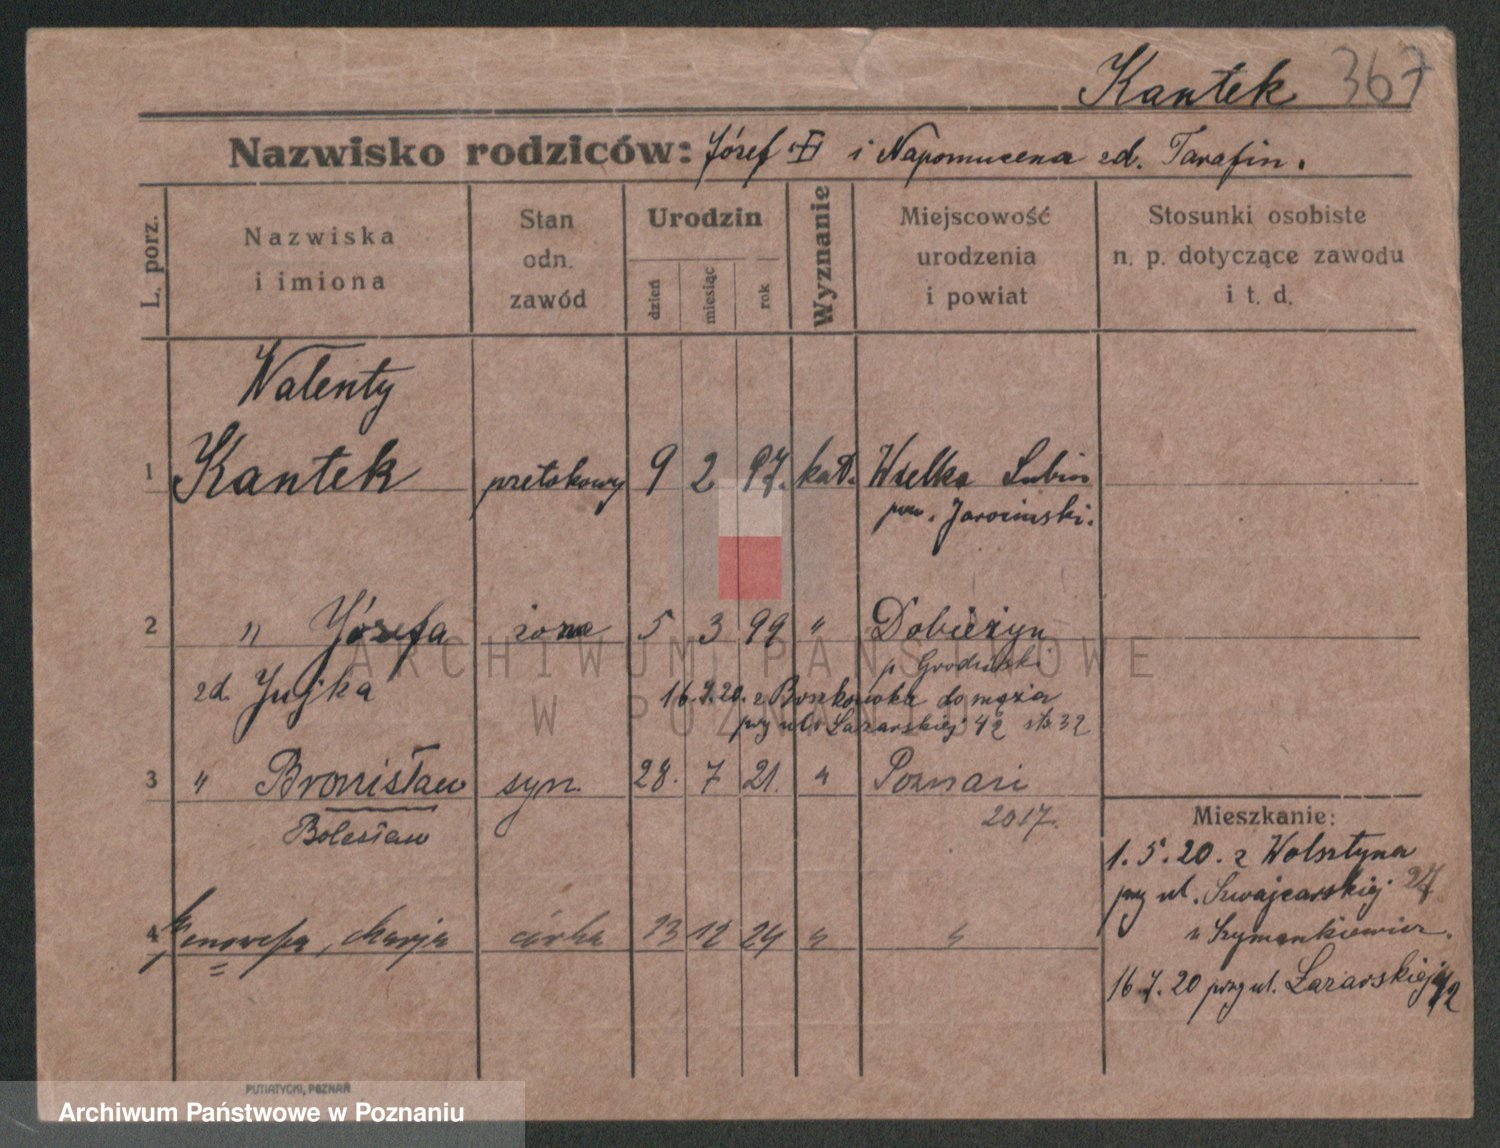 Kantek 367
Nazwisko rodziców: Józef i Napomucena zd. Tarafin.
L. porz.
Nazwiska
i imiona
Stan
odn.
zawód
Urodzin
dzień
miesiąc
rok
Wyznanie
Miejscowość
urodzenia
i powiat
Stosunki osobiste
n. p. dotyczące zawodu
i t. d.
Walenty
1 Kantek przetokowy 9 2 97. kat. Wielka Lubin
pow. Jarociński.
2 " Józefa żona 5 3 99 " Dobieżyn
p. Grodziski
zd. Jujka 16.7.20. z Boszkówka do męża
przy ul. Łazarskiej 42 str. 32
3 " Bronisław syn. 28. 7 21. " Poznań
Bolesław 2017.
4 Genowefa, Marja córka 23 12 24 " "
Mieszkanie:
1.5.20. z Wolsztyna
przy ul. Szwajcarskiej 27
u Szymankiewicz.
16.7.20 przy ul. Łazarskiej 42
ARCHIWUM PAŃSTWOWE
W POZNANIU
PUTIATYCKI, POZNAŃ
Archiwum Państwowe w Poznaniu